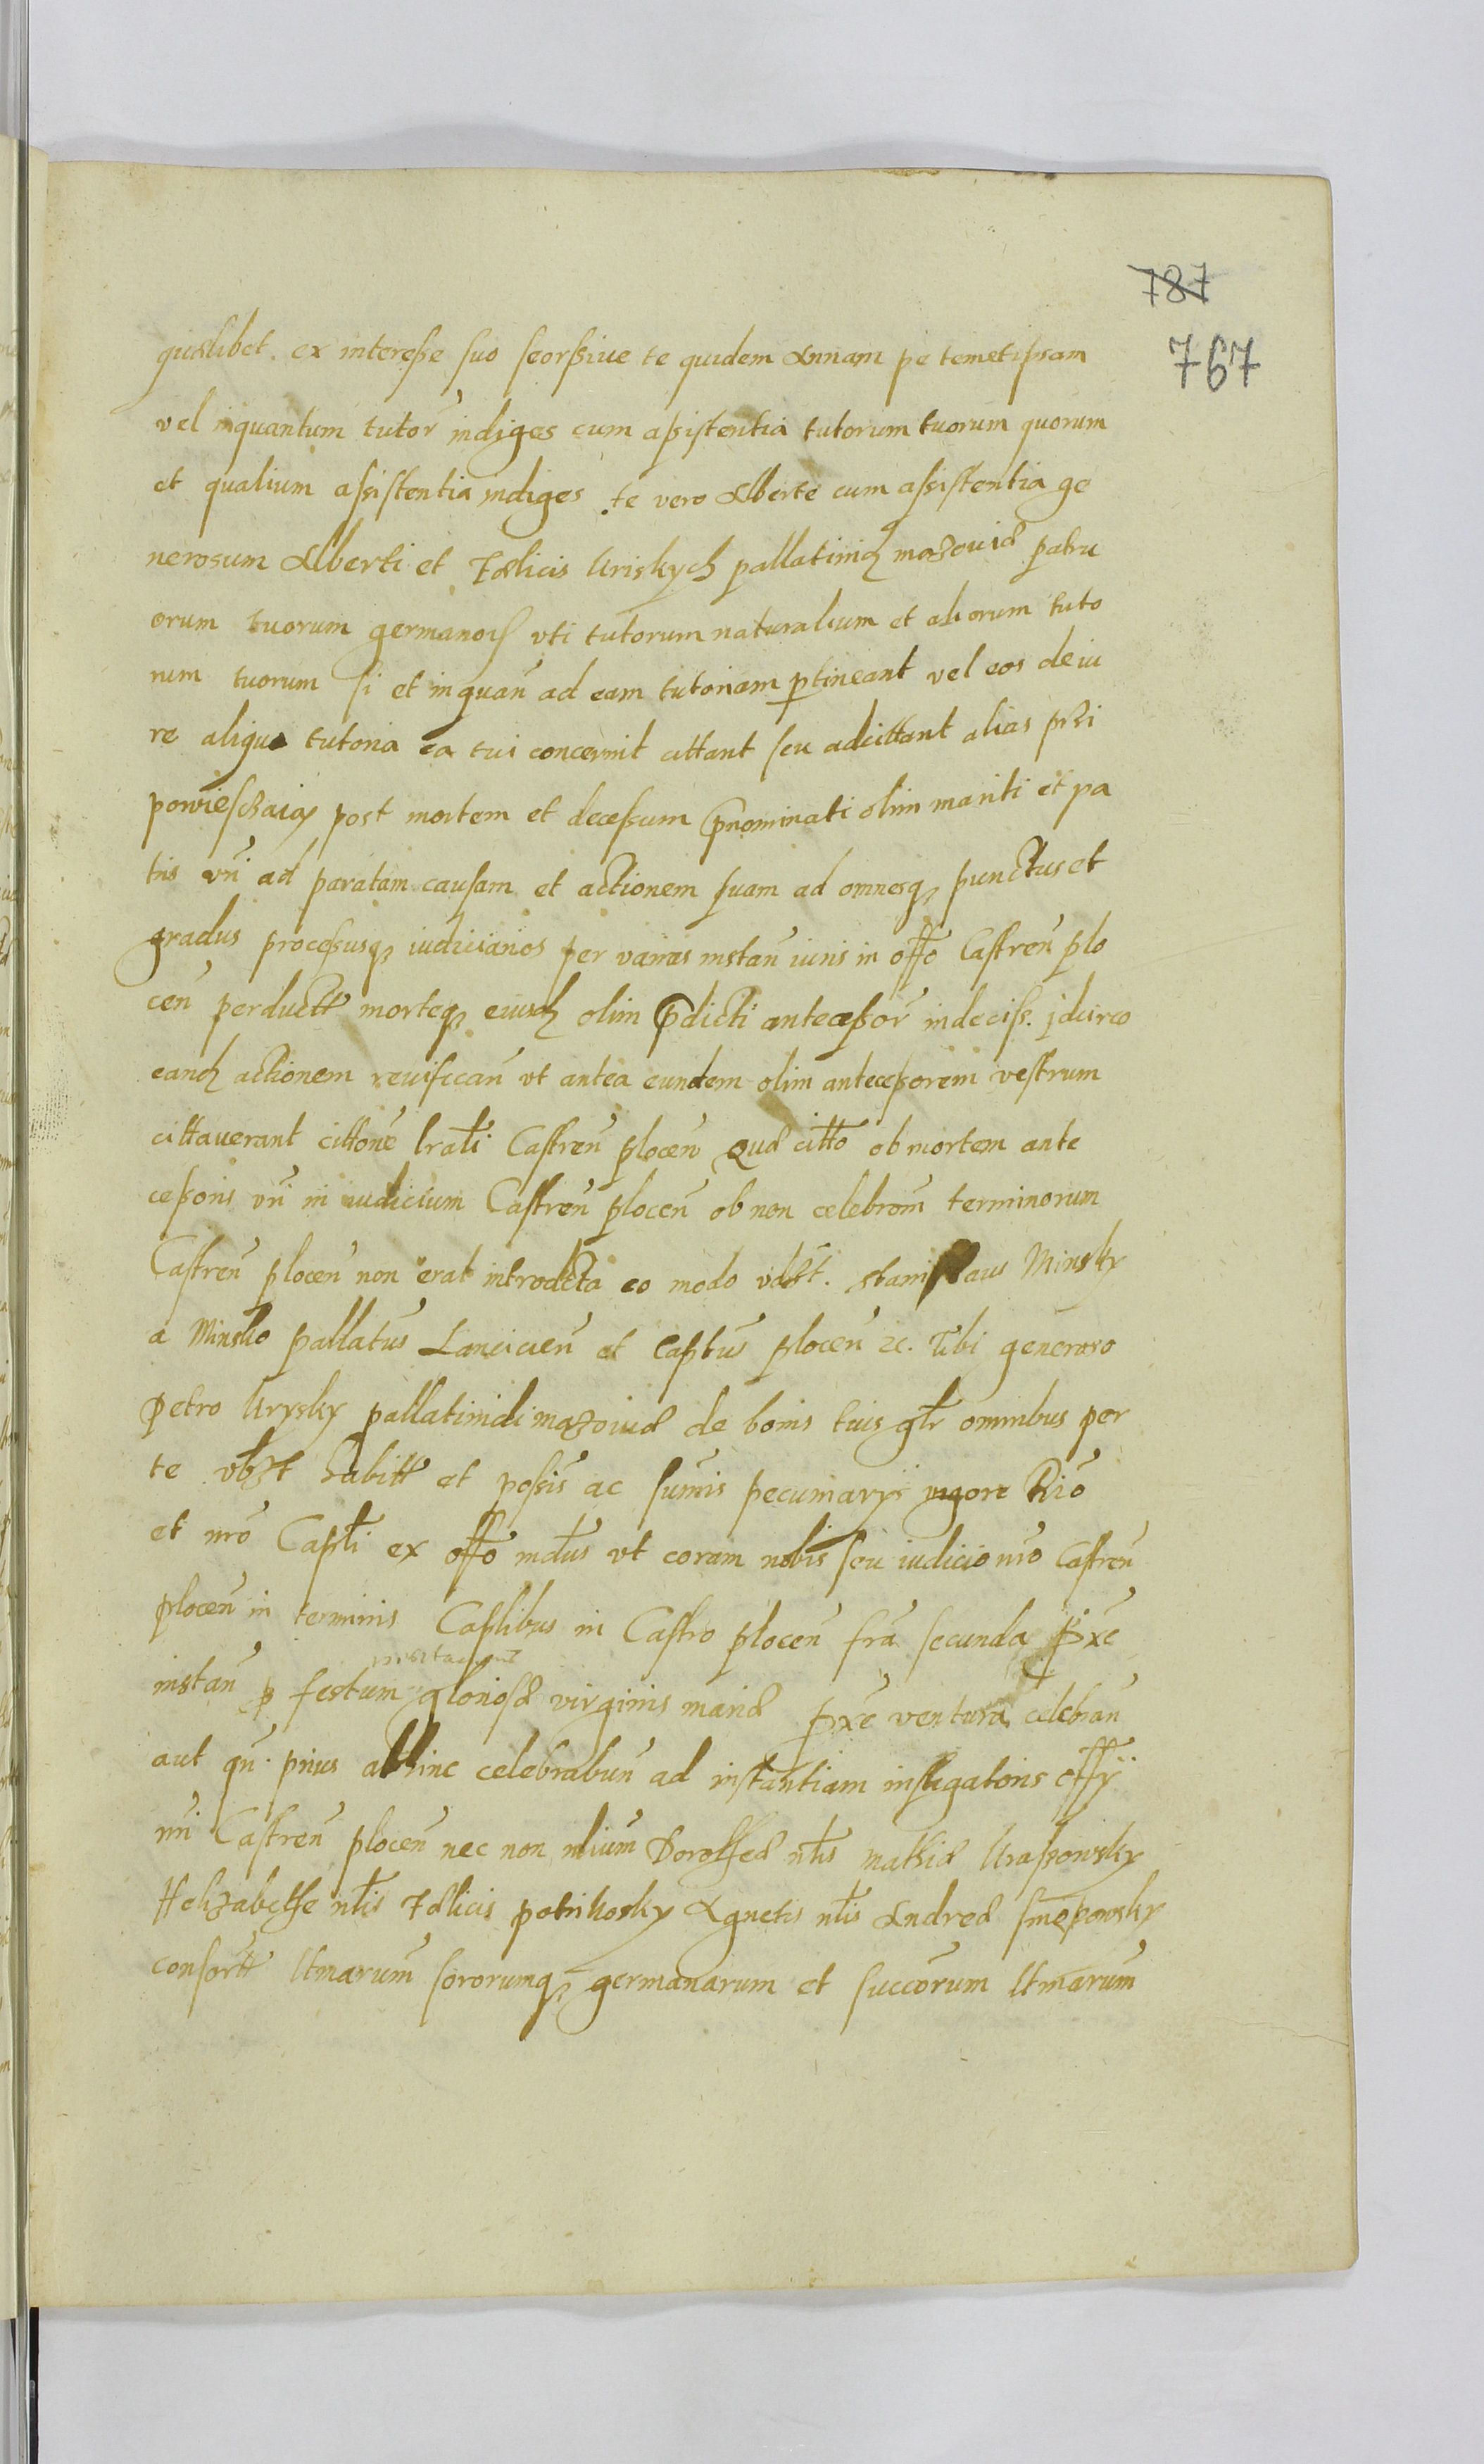 787
767
quælibet. ex interesse suo seorsiue te quidem Annam pe temetipsam
vel inquantum tutor̃ indiges cum asistentia tutorum tuorum quorum
et qualium assistentia indiges te vero Alberte cum assistentia ge
nerosum Alberti et Fælicis Uriskych pallatiniꝺ mazouiæ patru
orum tuorum germanoꝝ vti tutorum naturalium et aliorum tuto
rum tuorum si et inquañ ad eam tutoriam ꝑtineant vel eos de iu
re aliquo tutoria ea tui concernit cittant seu adcittant alias przi
powieschaią post mortem et decessum p̃nominati olim mariti et pa
tris vr̃i ad paratam causam et actionem suam ad omnesqꝫ punctus et
gradus processusqꝫ iudiciarios per varias instañ iuris in offo Castreñ plo
ceñ perductt̃ morteqꝫ eiusꝺ olim p̃dicti antecessor̃ indeciss. jdcirco
eanꝺ actionem reuificañ vt antea eundem olim antecessorem vestrum
cittauerant cittone lrali Castreñ ploceñ Quæ citto ob mortem ante
cessoris vr̃i in iudicium Castreñ ploceñ ob non celebrom̃ terminorum
Castreñ ploceñ non erat introdcta eo modo vdzt. Stanislaus Minsky
a Minsko pallatus̃ Lancicieñ et Captus̃ ploceñ ꝛc. Tibi generoso
Petro Urysky pallatinidi mazouiæ de bonis tuis glr omnibus per
te vbzt habitt̃ et possis̃ ac summis pecuniarys vigore Rio
et nro Capłi ex offo mdus vt coram nobis seu iudicio nr̃o Castreñ
ploceñ in terminis Caplibus in Castro ploceñ fra secunda pxe
instañ p festum gloriosæ virginis mariæ pxe ventura celebrañ
aut qñ prius abhinc celebrabuñ ad instantiam instigatoris offy
nr̃i Castreñ ploceñ nec non nlium̃ Dorotheæ nlis mathiæ Krassowsky
Helizabethe nlis Fælicis potrikosky Agnetis nlis Andreæ
consortt̃ ltmarum̃ sororumqꝫ germanarum et succorum ltmarum̃